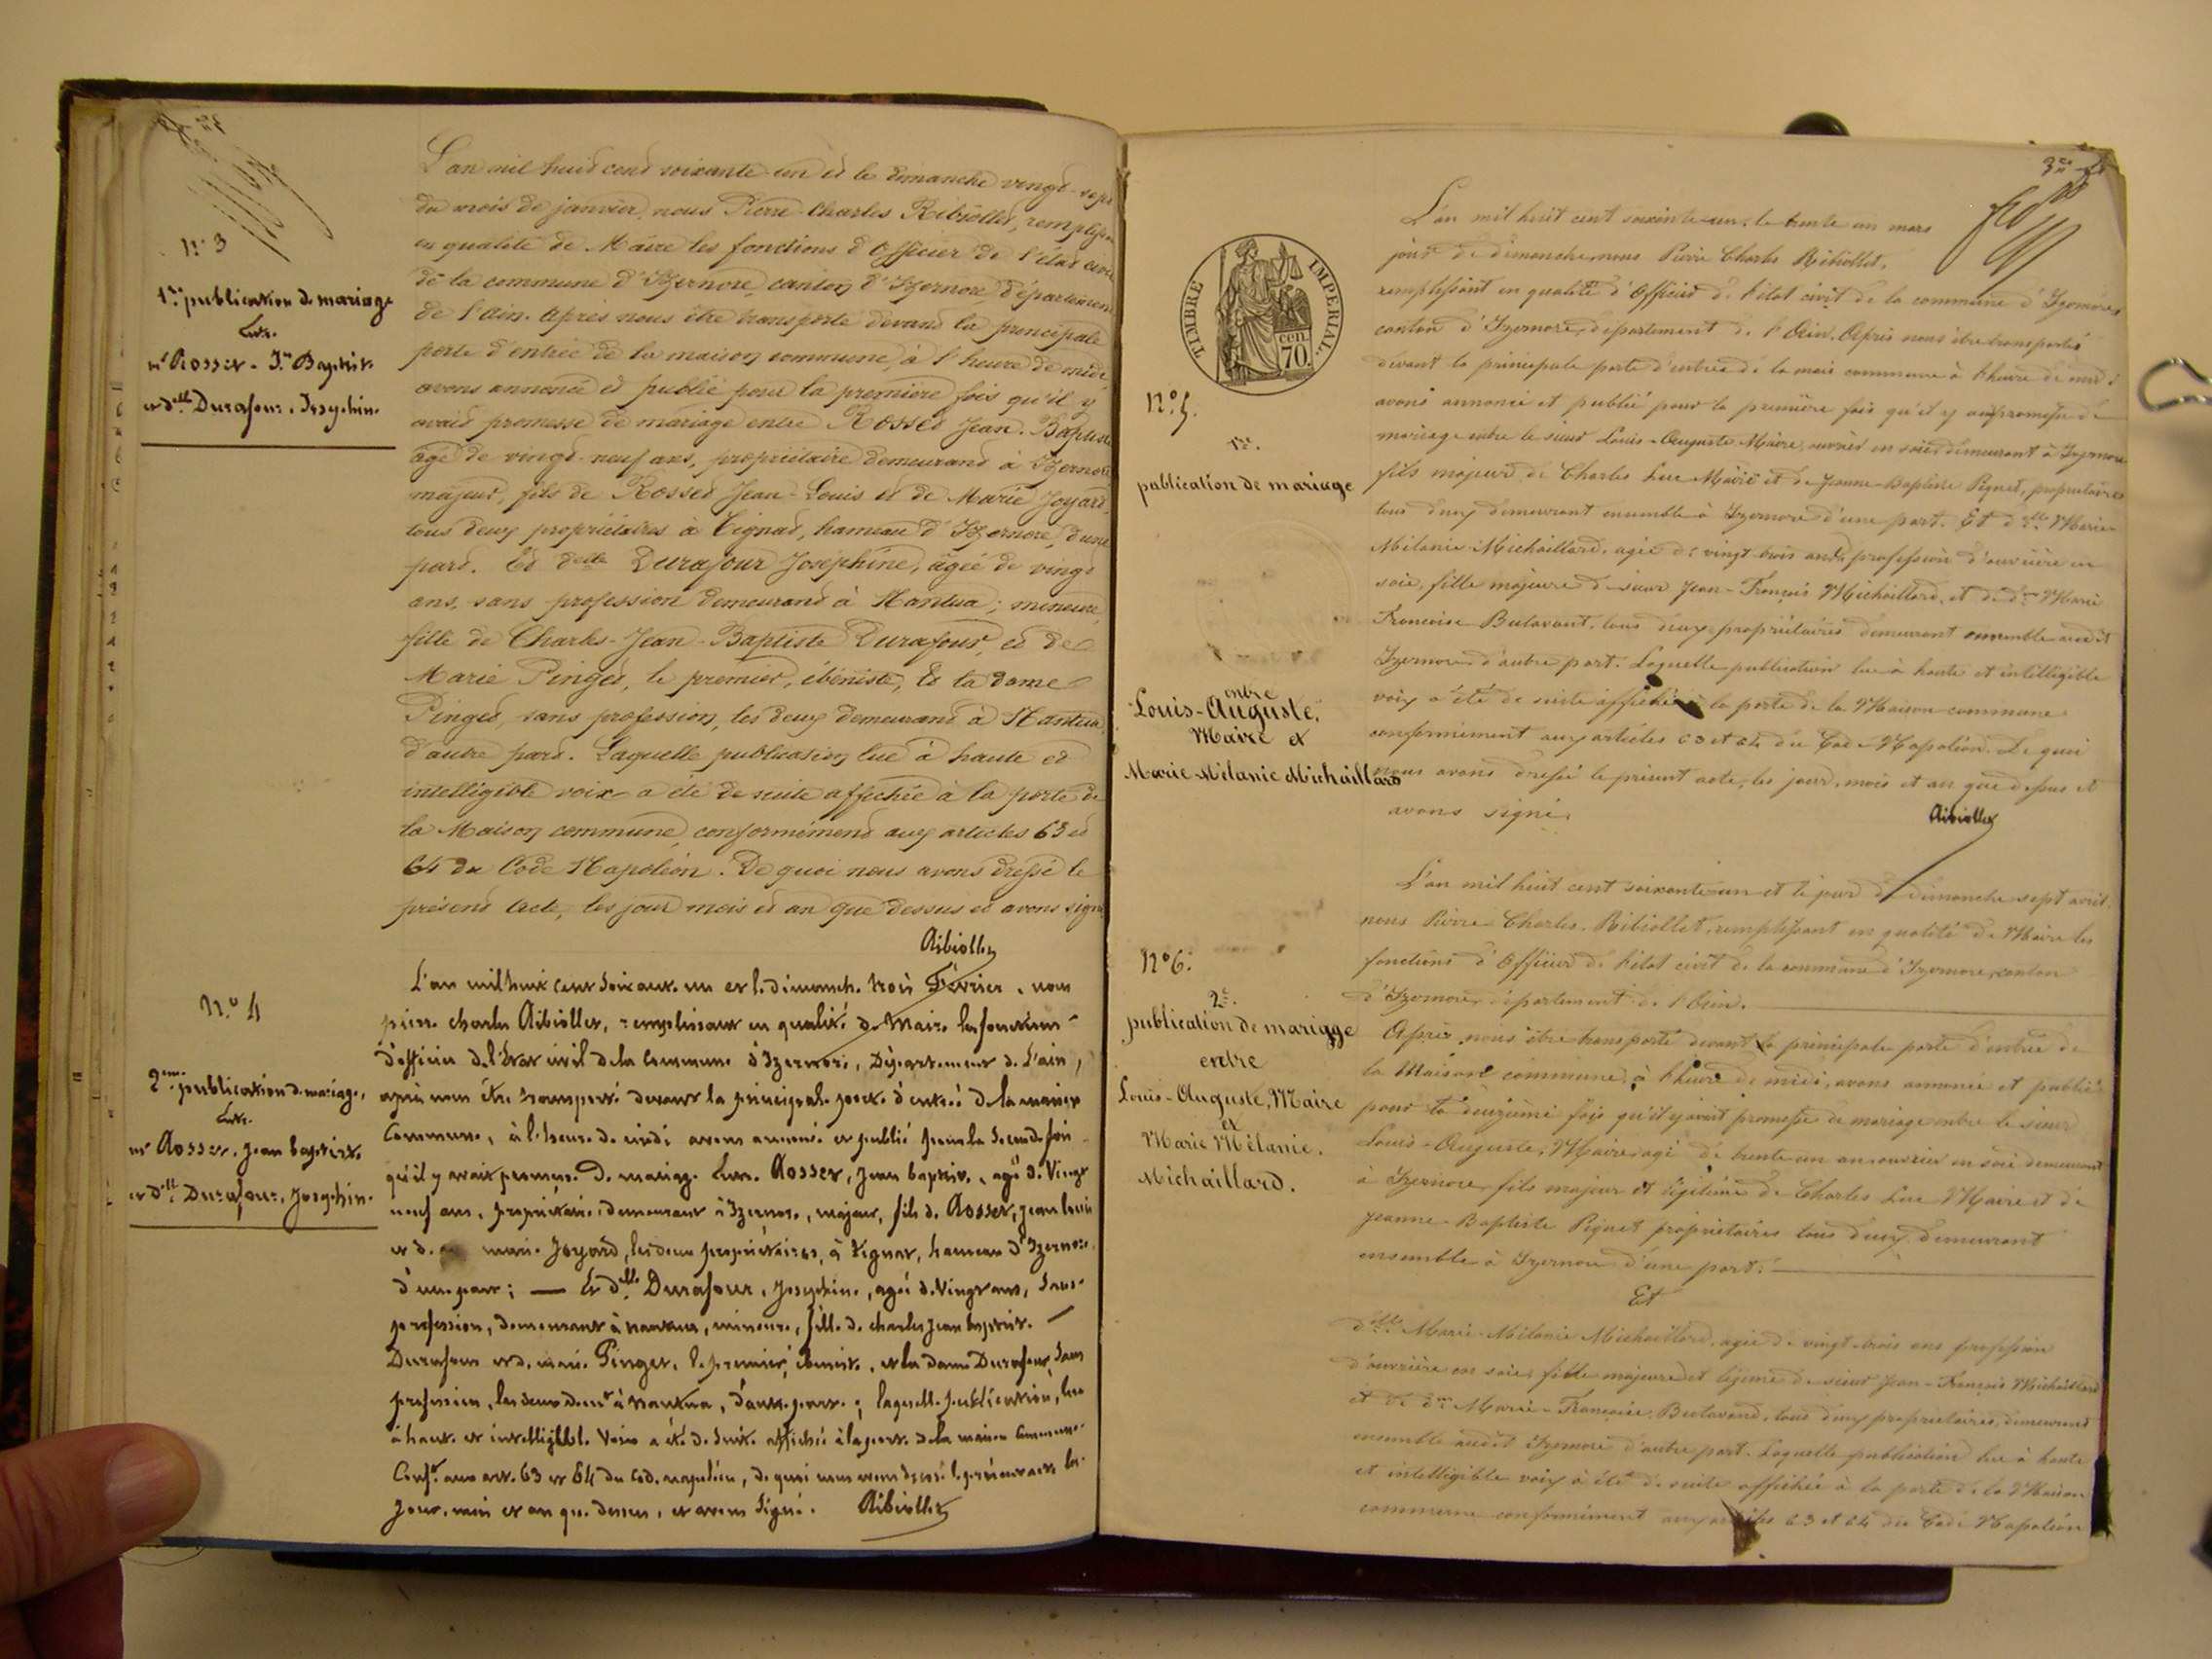 N.° 3
1.re publication de mariage
Entre
mr Rosset - Jn Baptiste
et dlle Durafour, Josephine
L'an mil huit cent soixante un et le dimanche vingt-sept
du mois de janvier, nous Pierre Charles Ribiollet, remplissant
en qualité de Maire les fonctions d'officier de l'état civil
de la commune d'Izernore, canton d'Izernore, département
de l'Ain. Après nous être transporté devant la principale
porte d'entrée de la maison commune, à l'heure de midi,
avons annoncé et publié pour la premiere fois qu'il y
avait promesse de mariage entre Rosset Jean-Baptiste
agé de vingt-neuf ans, propriétaire demeurant à Izernore,
majeur, fils de Rosset Jean-Louis et de Marie Joyard,
tous deux propriétaires à Tignat, hameau d'Izernore, d'une
part. Et delle Durafour Joséphine, âgée de vingt
ans, sans profession demeurant à Nantua; mineure,
fille de Charles-Jean-Baptiste Durafour, et de
Marie Pinget, le premier, ébéniste, et la dame
Pinget, sans profession, les deux demeurant à Nantua,
d'autre part. Laquelle publication lue à haute et
intelligible voix a été de suite affichée à la porte de
la Maison commune, conformément aux articles 63 et
64 du Code Napoléon. De quoi nous avons dressé le
présent acte, les jour mois et an que dessus et avons signé
Ribiollet
N.° 4
2me publication de mariage,
Entre
mr Rosset, Jean baptiste
et dlle Durafour, Josephine
L'an mil huit cent soixante un et le dimanche trois Février, nous
pierre charles Ribiollet, remplissant en qualité de Maire les fonctions
d'officier de l'Etat civil de la Commune d'Izernore, Département de L'ain,
après nous être transporté devant la principale porte d'entrée de la maison
Commune, à l'heure de midi avons annoncé et publié pour la seconde fois
qu'il y avait promesse de mariage Entre Rosset, Jean baptiste, agé de Vingt
neuf ans, propriétaire, demeurant à Izernore, majeur, fils de Rosset, Jean louis
et de marie Joyard, les deux propriétaires, à Tignat, hameau d'Izernore,
d'une part; — Et dlle Durafour, Josephine, agée de Vingt ans, Sans
profession, demeurant à nantua, mineure, fille de charles Jean baptiste —
Durafour et de marie Pinget, le premier, ébeniste, et la dame Durafour, Sans
profession, les deux demt à nantua, d'autre part; laquelle publication, lue
à haute et intelligible Voix a été de suite affichée à la porte de la maison Commune
Conft aux art. 63 et 64 du Code napoléon, de quoi nous avons dressé le présent acte les
Jour, mois et an que dessus, et avons Signé. Ribiollet
TIMBRE IMPERIAL.
cen. 70.
N.° 5.
1re.
publication de mariage
entre
Louis-Auguste,
Maire et
Marie Mélanie Michaillard
L'an mil huit cent soixante-un, le trente un mars
jour de dimanche, nous Pierre Charles Ribiollet,
remplissant en qualité d'Officier de l'état civil de la commune d'Izernore
canton d'Izernore, département de l'Ain. Après nous être transporté
devant la principale porte d'entrée de la mais commune à l'heure de midi
avons annoncé et publié pour la première fois qu'il y promesse de
mariage entre le sieur Louis-Auguste Maire, ouvrier en soie, demeurant à Izernore
fils majeur de Charles Luc Maire et de Jeanne-Baptiste Piquet, propriétaires
tous deux demeurant ensemble à Izernore d'une part. Et dlle Marie
Mélanie Michaillard, agée de vingt-trois ans, profession d'ouvrière en
soie, fille majeure de sieur Jean-François Michaillard, et de dme Marie
Francoise Butavant, tous deux propriétaires demeurant ensemble audit
Izernore d'autre part. Laquelle publication lue à haute et intelligible
voix a été de suite affichée à la porte de la Maison commune
conformément aux articles 63 et 64 du Code Napoléon. De quoi
nous avons dressé le présent acte, les jour, mois et an que dessus et
avons signé.
Ribiollet
N.° 6.
2e.
publication de mariage
entre
Louis-Auguste, Maire
et
Marie Mélanie.
Michaillard.
L'an mil huit cent soixante-un et le jour de dimanche sept avril,
nous Pierre Charles Ribiollet, remplissant en qualité de Maire les
fonctions d'Officier de l'état civil de la commune d'Izernore, canton
d'Izernore, département de l'Ain.
Après nous être transporté devant la principale porte d'entrée de
la Maison commune, à l'heure de midi, avons annoncé et publié
pour la deuxième fois qu'il y avait promesse de mariage entre le sieur
Louis-Auguste, Maire, agé de trente-un ans ouvrier en soie demeurant
à Izernore, fils majeur et légitime de Charles Luc Maire et de
Jeanne-Baptiste Piquet propriétaires tous deux demeurant
ensemble à Izernore d'une part.
Et
dlle Marie-Mélanie Michaillard, agée de vingt-trois ans profession
d'ouvrière en soie, fille majeure et de sieur Jean-François Michaillard
et de dme Marie-Françoise, tous deux propriétaires, demeurant
ensemble audit Izernore d'autre part. Laquelle publication lue à haute
et intelligible voix à été de suite affichée à la porte de la Maison
commune conformément aux articles 63 et 64 du Code Napoléon